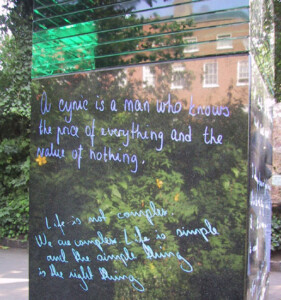 A cynic is a man who knows
the price of everything and the
value of nothing.
Life is not complex.
We are complex. Life is simple
and the simple thing
is the right thing